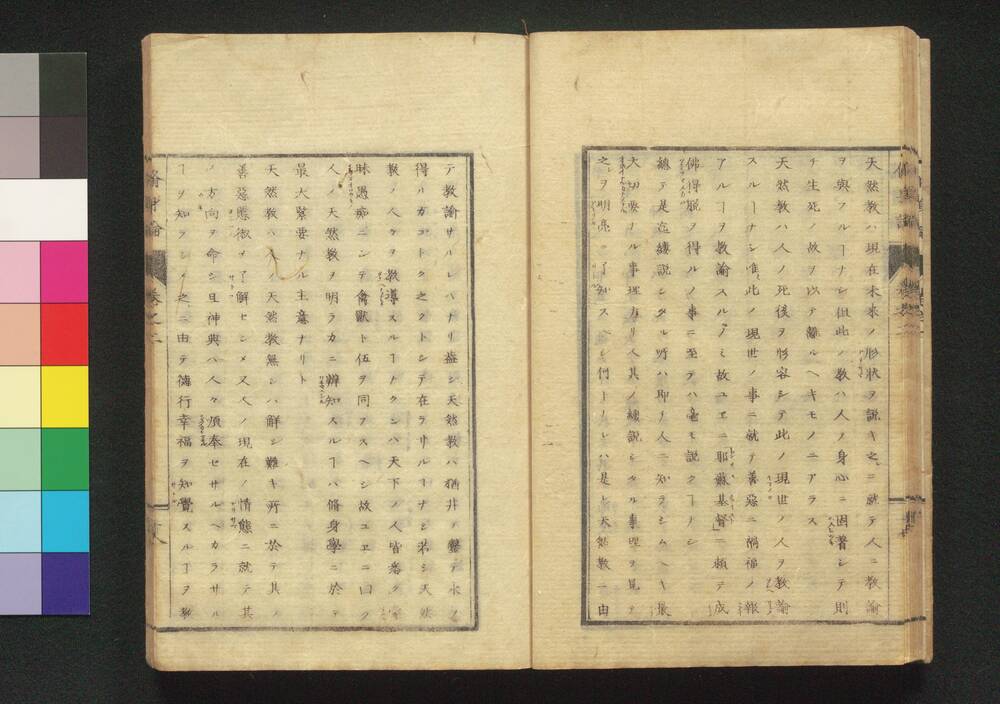 天然教ハ現在未來ノ形狀ヲ説キ之ニ就テ人ニ教諭
ヲ與フルヿナシ但此ノ教ハ人ノ身心ニ固著シテ則
チ生死ノ故ヲ以テ離ルヘキモノニアラス
天然教ハ人ノ死後ヲ形容シテ此ノ現世ノ人ヲ教諭
スルヿナシ唯此ノ現世ノ事ニ就テ善惡ニ禍福ノ報
アルヿヲ教諭スルノミ故ユヱニ耶蘇基督ニ頼テ成
佛得脱ヲ得ルノ事ニ至テハ毫モ説クヿナシ
總テ是迄縷説シタル所ハ即チ人ニ知ラシムヘキ最
大切要ノル事理ナリ人其ノ縷説シタル事理ヲ見テ
之ヲ明亮ニ了知スヘシ何ントナレハ是レ天然教ニ由
テ教諭サルレハナリ蓋シ天然教ハ猶井ヲ鑿テ水ヲ
得ルカコトク之クトシテ在ラサルヿナシ若シ天然
教ノ人々ヲ教導スルヿナクンハ天下ノ人皆悉ク
昧愚癡ニシテ禽獸ト伍ヲ同フスヘシ故ユヱニ曰ク
人ノ天然教ヲ明ラカニ辨知スルヿハ脩身學ニ於テ
最大緊要ナル主意ナリト
天然教ハ人ノ天然教無シハ解シ難キ所ニ於テ其ノ
善惡應徴ヲ了解セシメ又人ノ現在ノ情態ニ就テ其
ノ方向ヲ命シ且神典ハ人々須奉セサルヘカラサル
ヿヲ知ラシメ之ニ由テ徳行幸福ヲ知覺スルヿヲ教
脩身論
卷之二